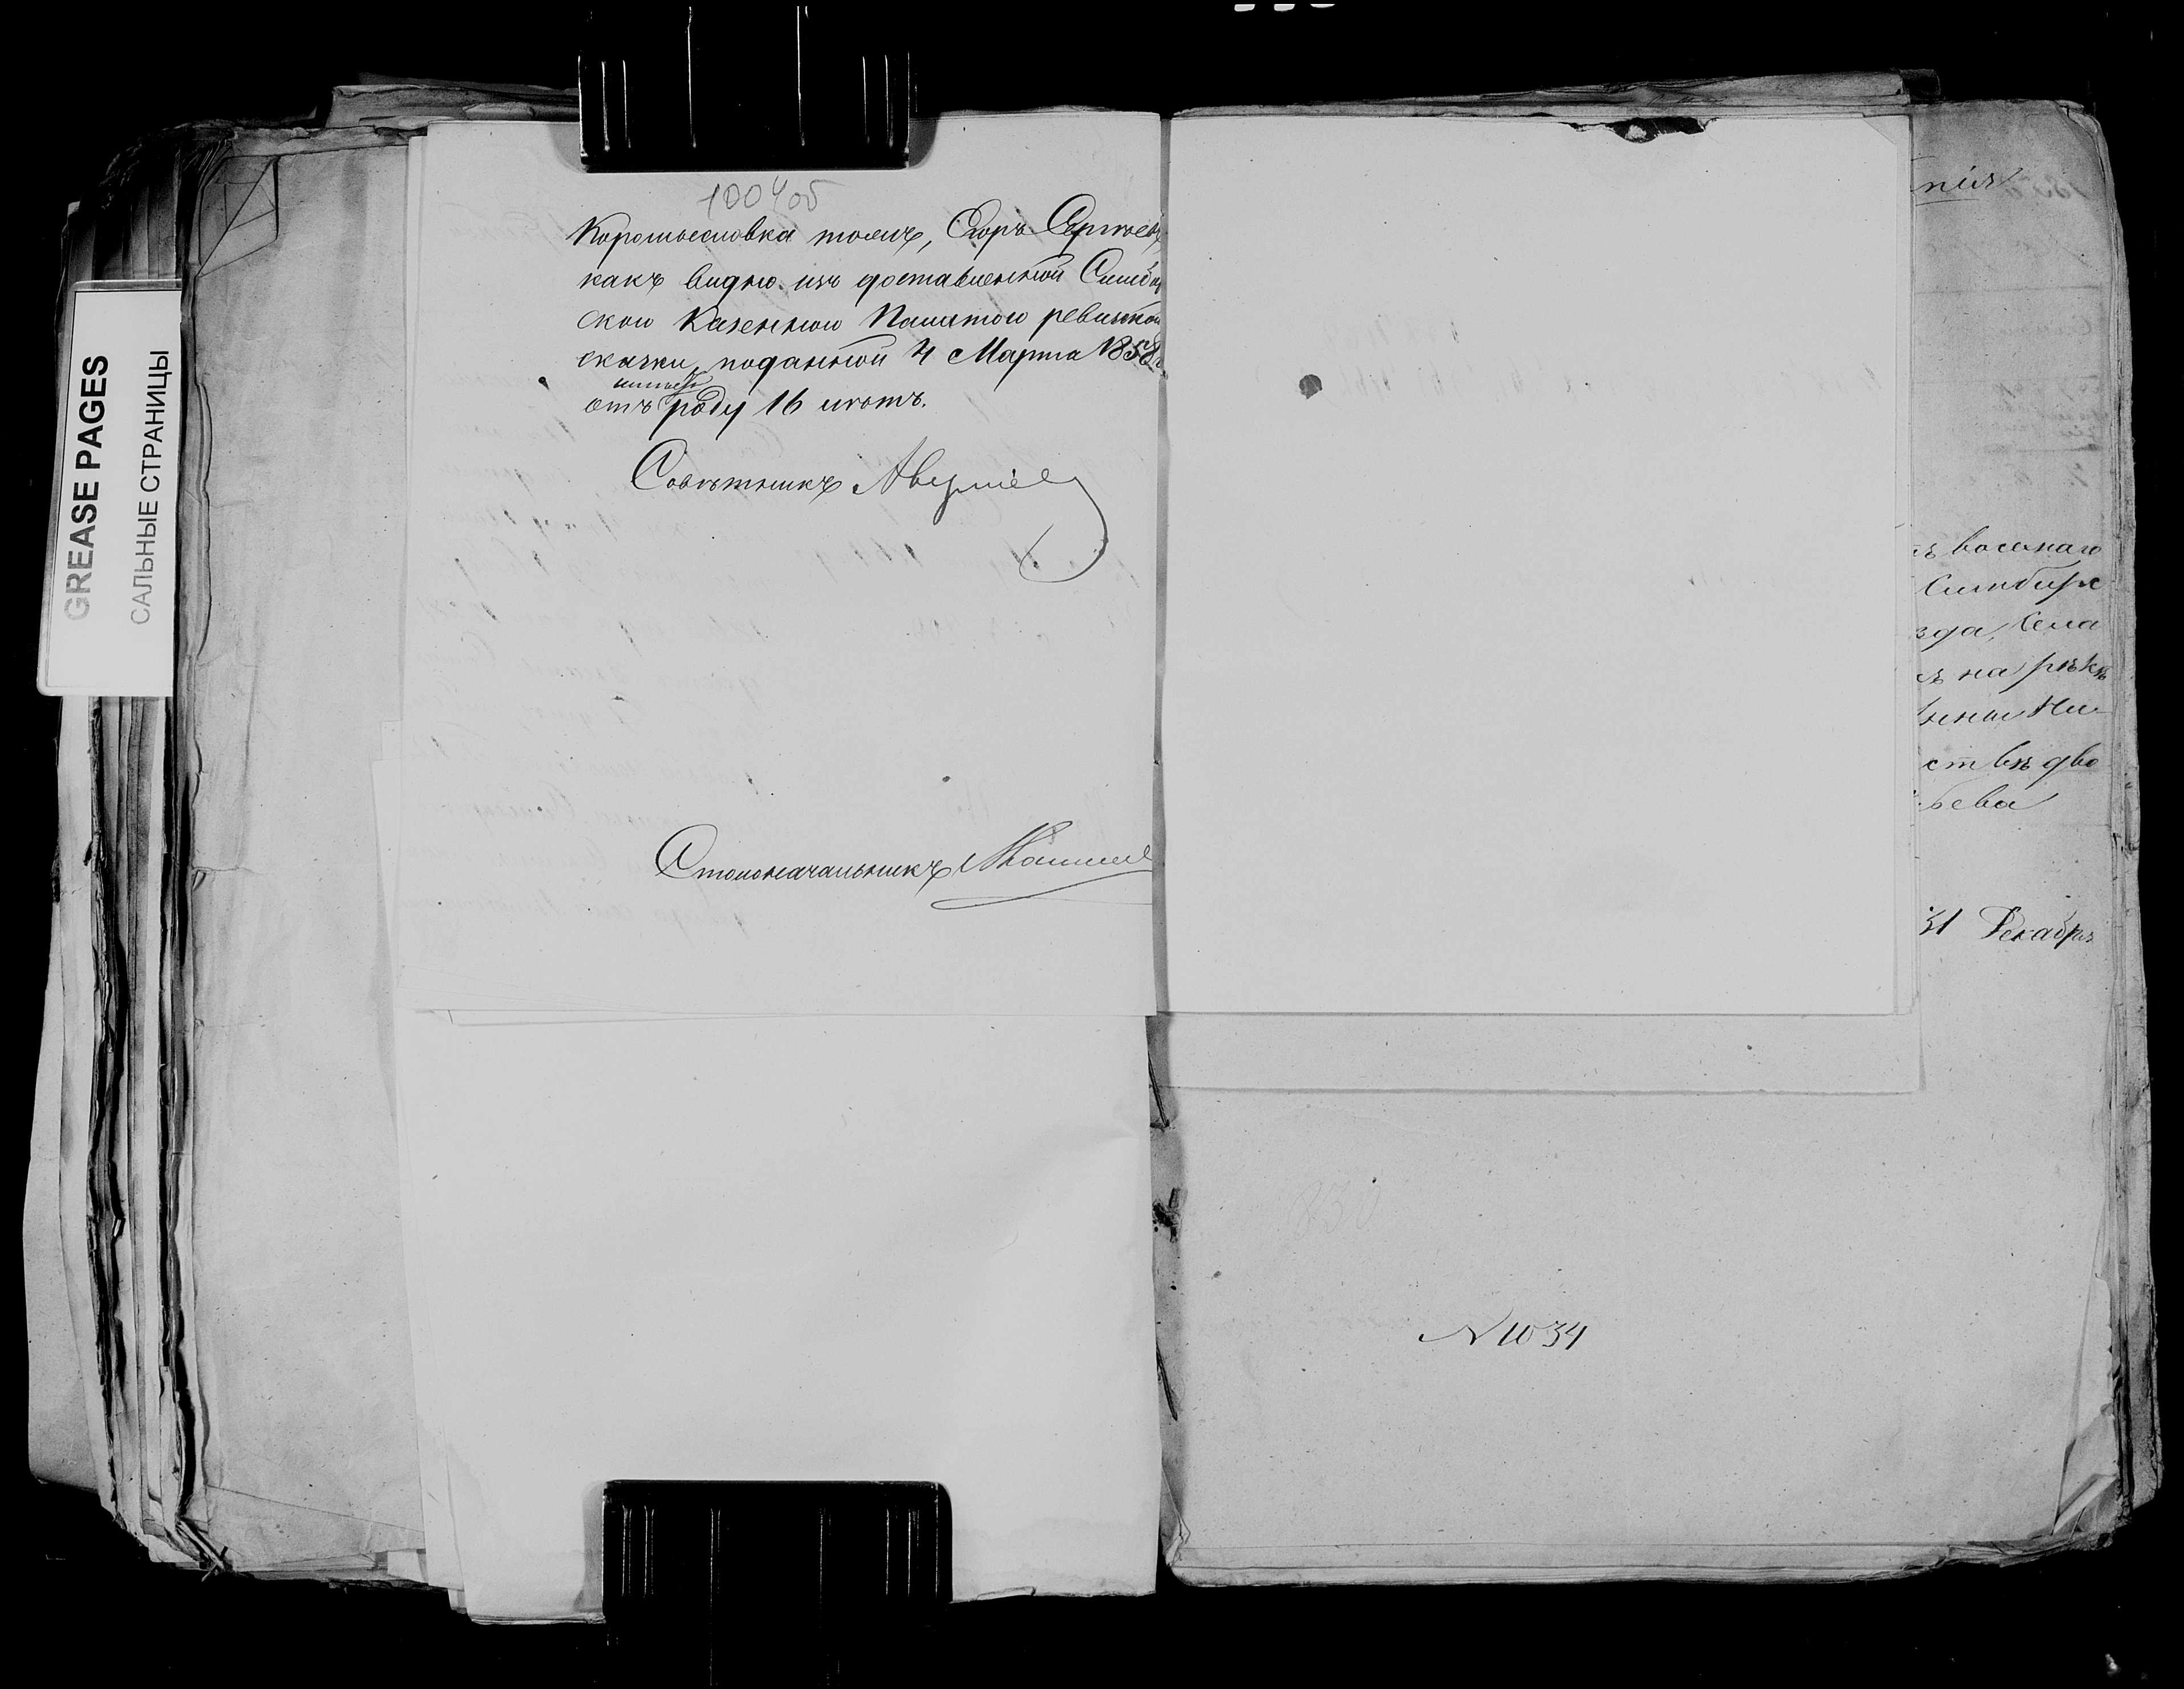 GREASE PAGES
САЛЬНЫЕ СТРАНИЦЫ
1004об
Коромысловка тожъ, Егоръ Сергѣевъ,
какъ видно изъ доставленной Симбир
ской Казенной Палатою ревизской
сказки, поданной 4 Марта 1858 г.
имѣетъ
отъ роду 16 лѣтъ.
Совѣтникъ
Столоначальникъ
нія
ъ восьмаго
Симбирс
зда, Села
на рѣкѣ
ствѣ дво
ева
31 Декабря
N 1034